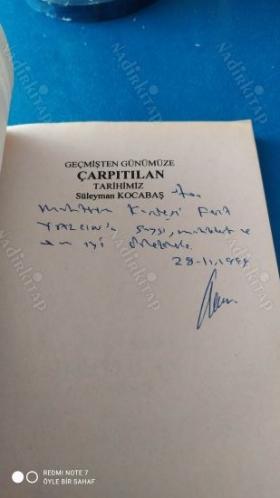 GEÇMİŞTEN GÜNÜMÜZE
ÇARPITILAN
TARİHİMİZ
Süleyman KOCABAŞ
Muhterem Kardeşi
YAZICIN'a saygı, muhabbet ve
en iyi dileklerle
28-11.1999
NadirKitap
REDMI NOTE 7
ÖYLE BİR SAHAF